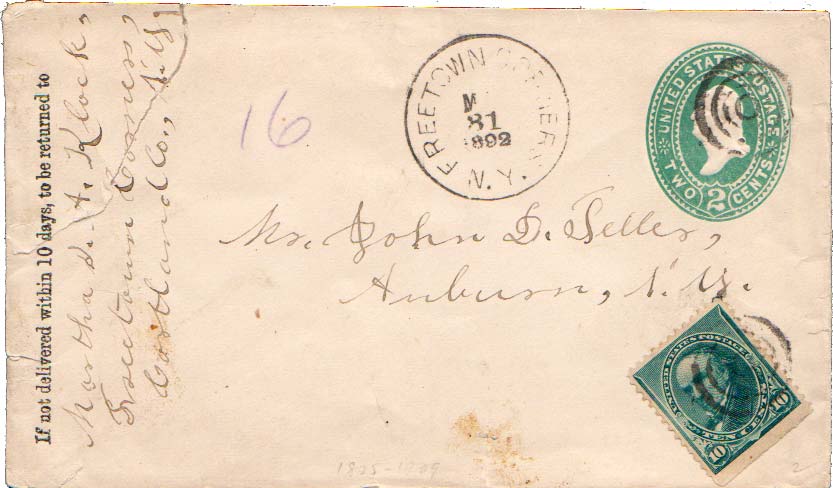 If not delivered within 10 days, to be returned to
Martha L. A. Klock,
Freetown Corners,
Cortland Co., N.Y.
16
FREETOWN CORNERS
M
31
1892
N.Y.
UNITED STATES POSTAGE
TWO 2 CENTS.
Mr. John D. Teller,
Auburn, N.Y.
UNITED STATES POSTAGE
10 TEN CENTS 10
2